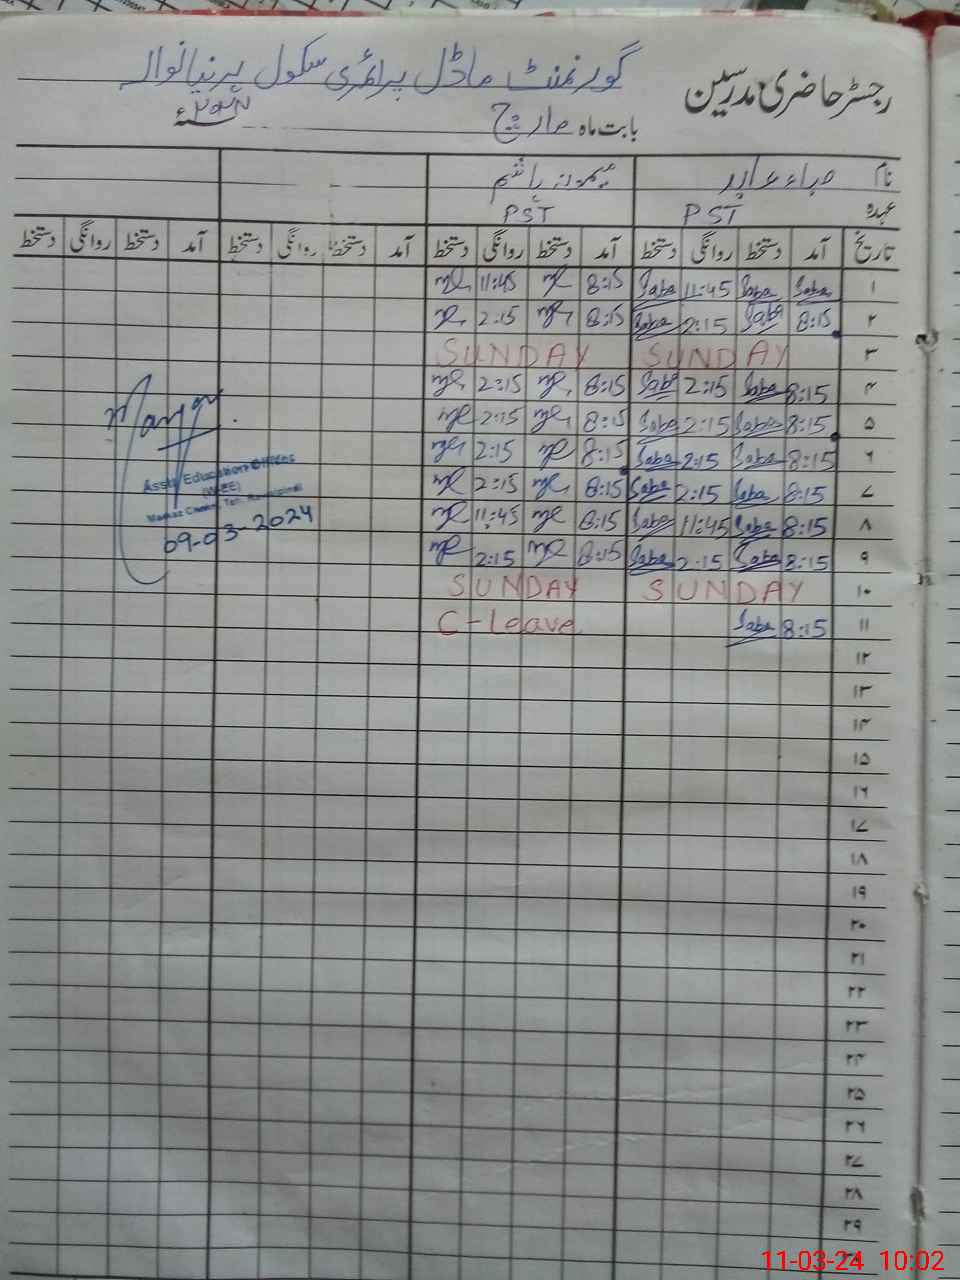 رجسٹر حاضری مدرسین
گورنمنٹ ماڈل پرائمری سکول
بابت ماہ مارچ
نام صباء عابد میمونہ ہاشم
عہدہ PST PST
تاریخ آمد دستخط روانگی دستخط آمد دستخط روانگی دستخط آمد دستخط روانگی دستخط آمد دستخط روانگی دستخط
۱ Saba Saba 11:45 Saba 8:15 11:45
۲ 8:15 Saba 2:15 Saba 8:15 2:15
۳ SUNDAY SUNDAY
۴ 8:15 Saba 2:15 Saba 8:15 2:15
۵ 8:15 Saba 2:15 Saba 8:15 2:15
۶ 8:15 Saba 2:15 Saba 8:15 2:15
۷ 8:15 Saba 2:15 Saba 8:15 2:15
۸ 8:15 Saba 11:45 Saba 8:15 11:45
۹ 8:15 Saba 2:15 Saba 8:15 2:15
۱۰ SUNDAY SUNDAY
۱۱ 8:15 Saba C-Leave
۱۲
۱۳
۱۴
۱۵
۱۶
۱۷
۱۸
۱۹
۲۰
۲۱
۲۲
۲۳
۲۴
۲۵
۲۶
۲۷
۲۸
۲۹
Asstt. Education Officer
(W-EE)
09-03-2024
11-03-24 10:02